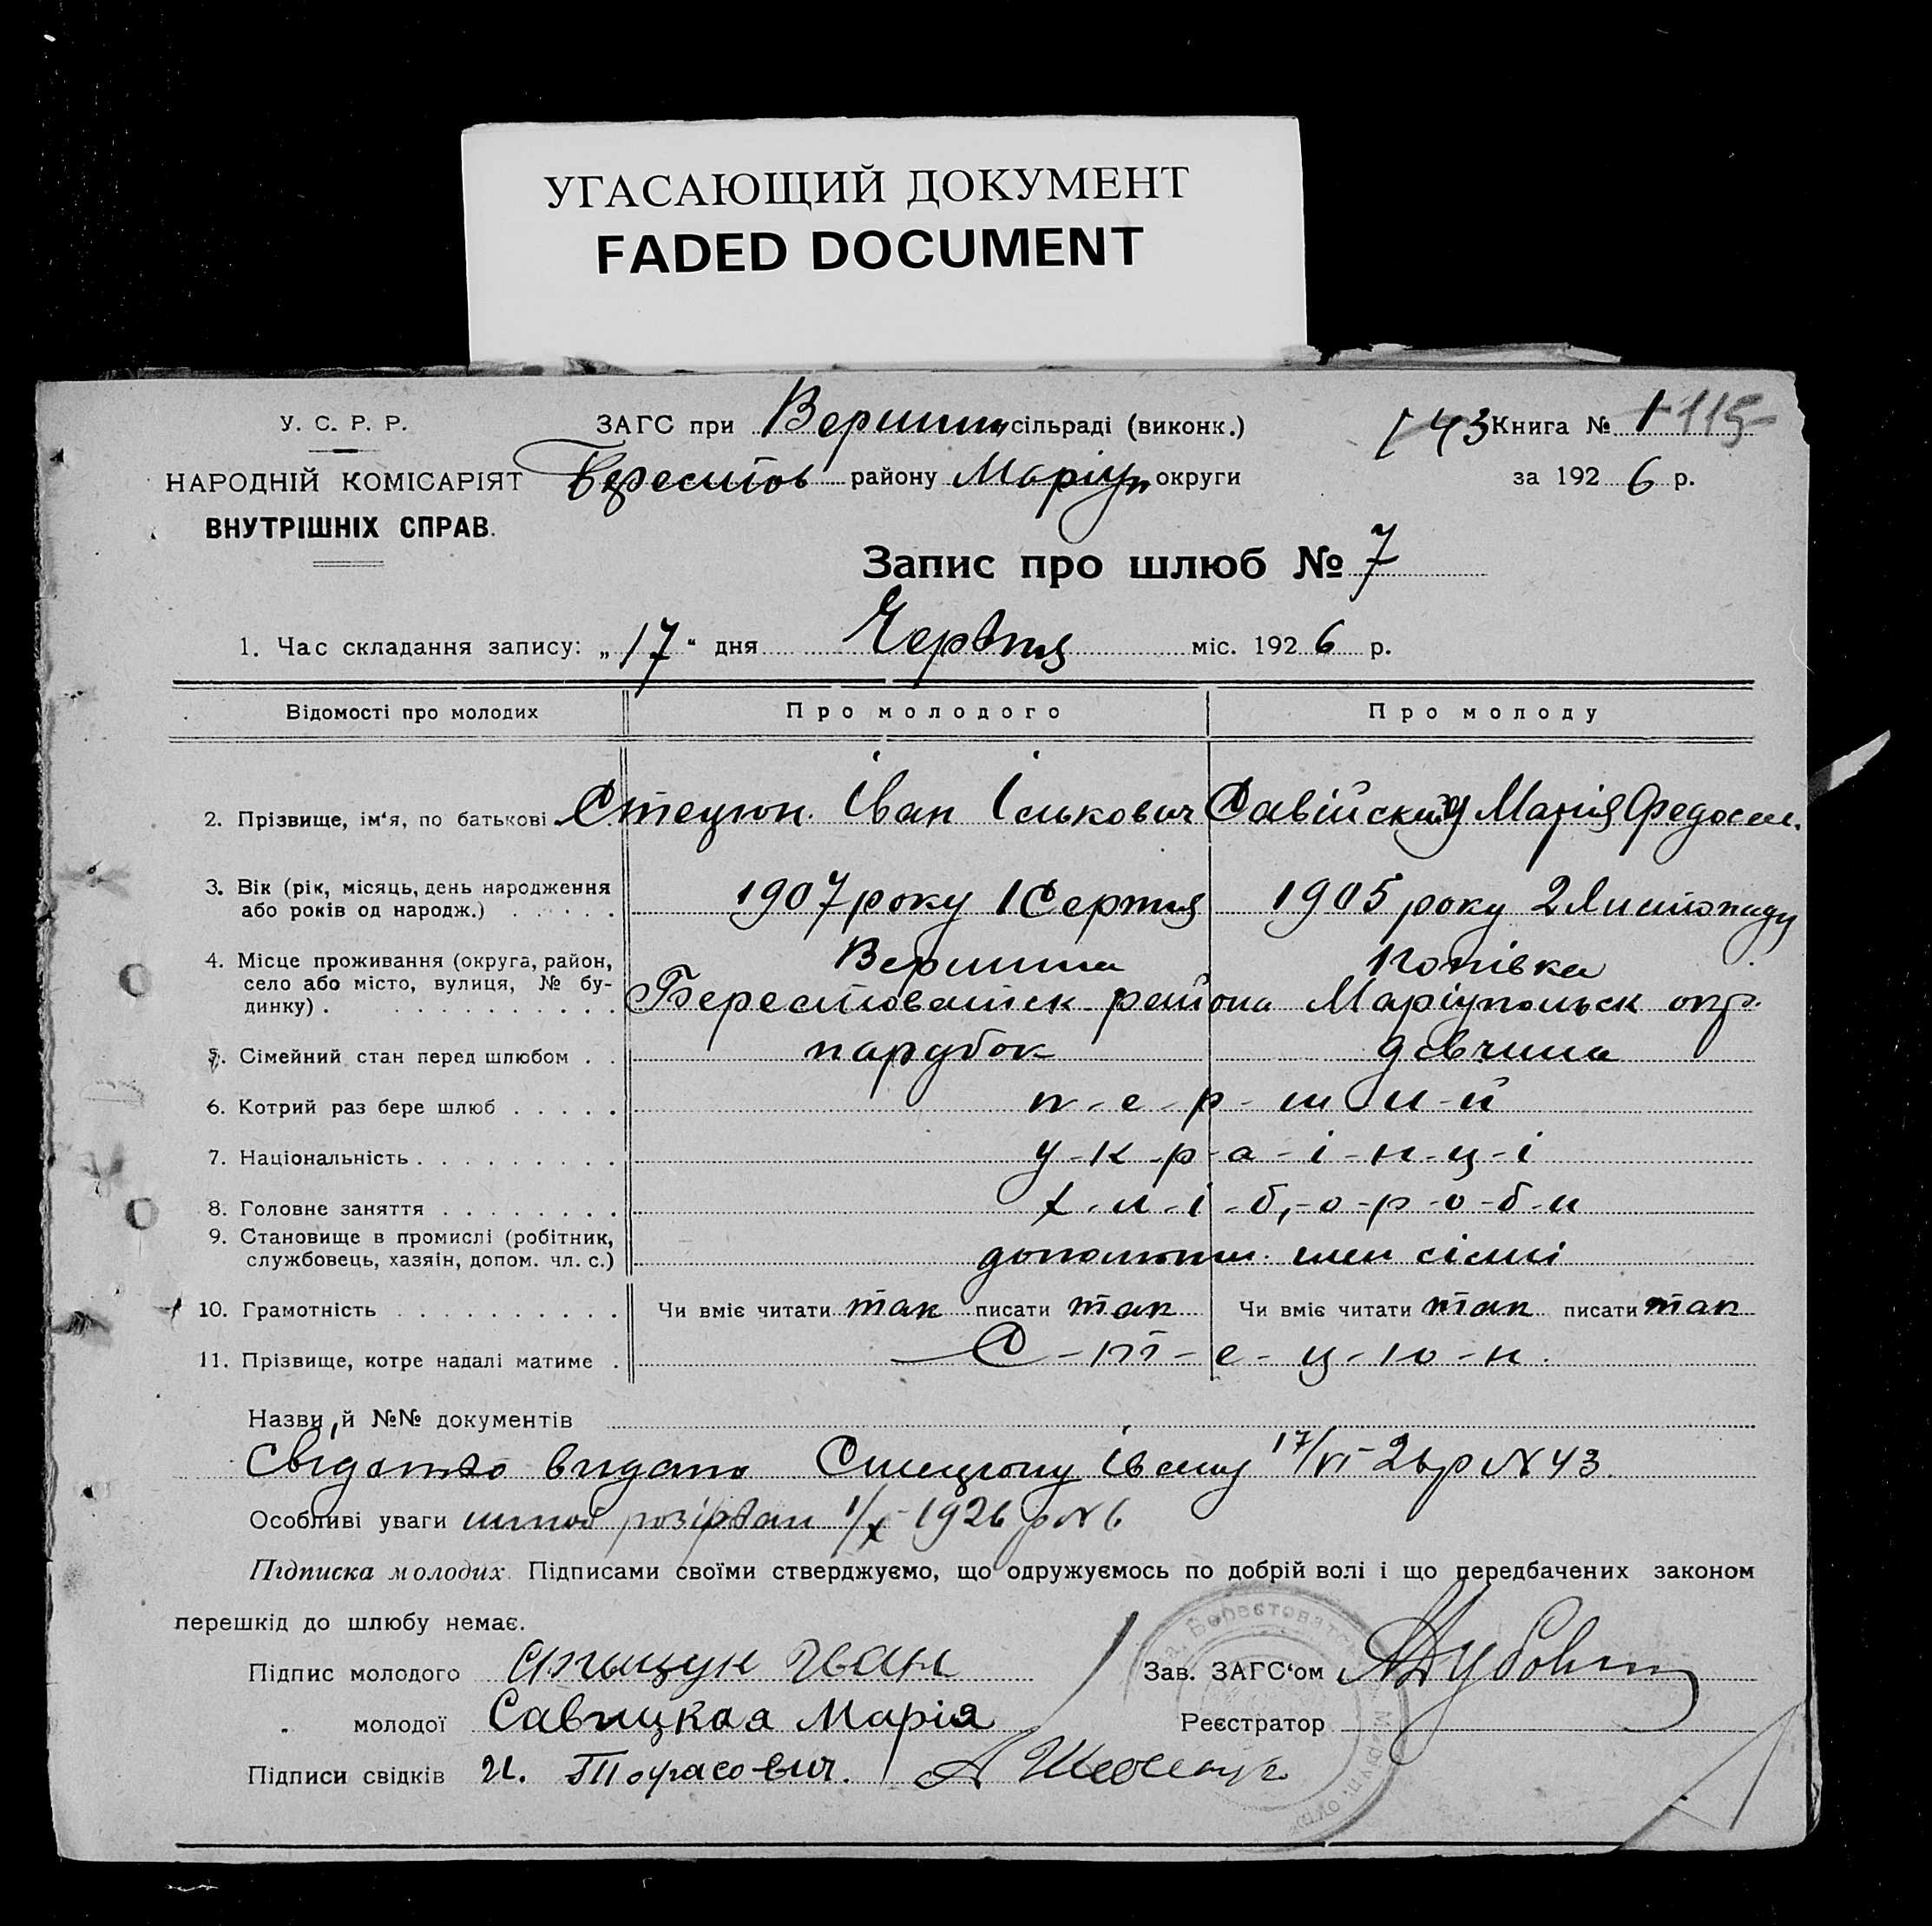 УГАСАЮЩИЙ ДОКУМЕНТ
FADED DOCUMENT
У. С. Р. Р.
НАРОДНІЙ КОМІСАРІЯТ
ВНУТРІШНІХ СПРАВ.
ЗАГС при Вершин сільраді (виконк.)
Берестов району Маріуп округи
43 Книга № 1 115
за 1926 р.
Запис про шлюб № 7
1. Час складання запису: „17“ дня Червня міс. 1926 р.
Відомості про молодих Про молодого Про молоду
2. Прізвище, ім'я, по батькові Стецюн Іван Ількович Савійський Марія Федосеи.
3. Вік (рік, місяць, день народження або років од народж.) 1907 року 1 Серпня 1905 року 2 Листопаду
4. Місце проживання (округа, район, село або місто, вулиця, № будинку) Вершина Попівка
Берестоватск района Маріупольск окр.
5. Сімейний стан перед шлюбом парубок дівчина
6. Котрий раз бере шлюб п-е-р-ш-и-й
7. Національність у-к-р-а-ї-н-ц-і
8. Головне заняття х-л-і-б-о-р-о-б-и
9. Становище в промислі (робітник, службовець, хазяїн, допом. чл. с.) члени сімї
10. Грамотність Чи вміє читати так писати так Чи вміє читати так писати так
11. Прізвище, котре надалі матиме С-т-е-ц-ю-н.
Назви й №№ документів
Свідотво видано Стецюну Івану 17/VI-26 р N 43.
Особливі уваги шлюб розірван 1/X-1926 р N 6
Підписка молодих. Підписами своїми стверджуємо, що одружуємось по добрій волі і що передбачених законом
перешкід до шлюбу немає.
Підпис молодого Іван
Зав. ЗАГС'ом
„ молодої Савицкая Марія
Реєстратор
Підписи свідків И. Тарасович.